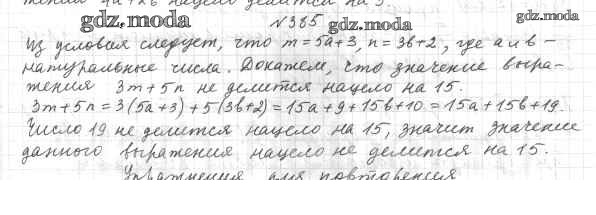 тении 4a+2b нацело делится на 3.
gdz.moda №385 gdz.moda gdz.moda
Из условия следует, что m=5a+3, n=3b+2, где a и b –
натуральные числа. Докажем, что значение выра-
жения 3m+5n не делится нацело на 15.
3m+5n = 3(5a+3)+5(3b+2)=15a+9+15b+10=15a+15b+19.
Число 19 не делится нацело на 15, значит значение
данного выражения нацело не делится на 15.
Упражнения для повторения